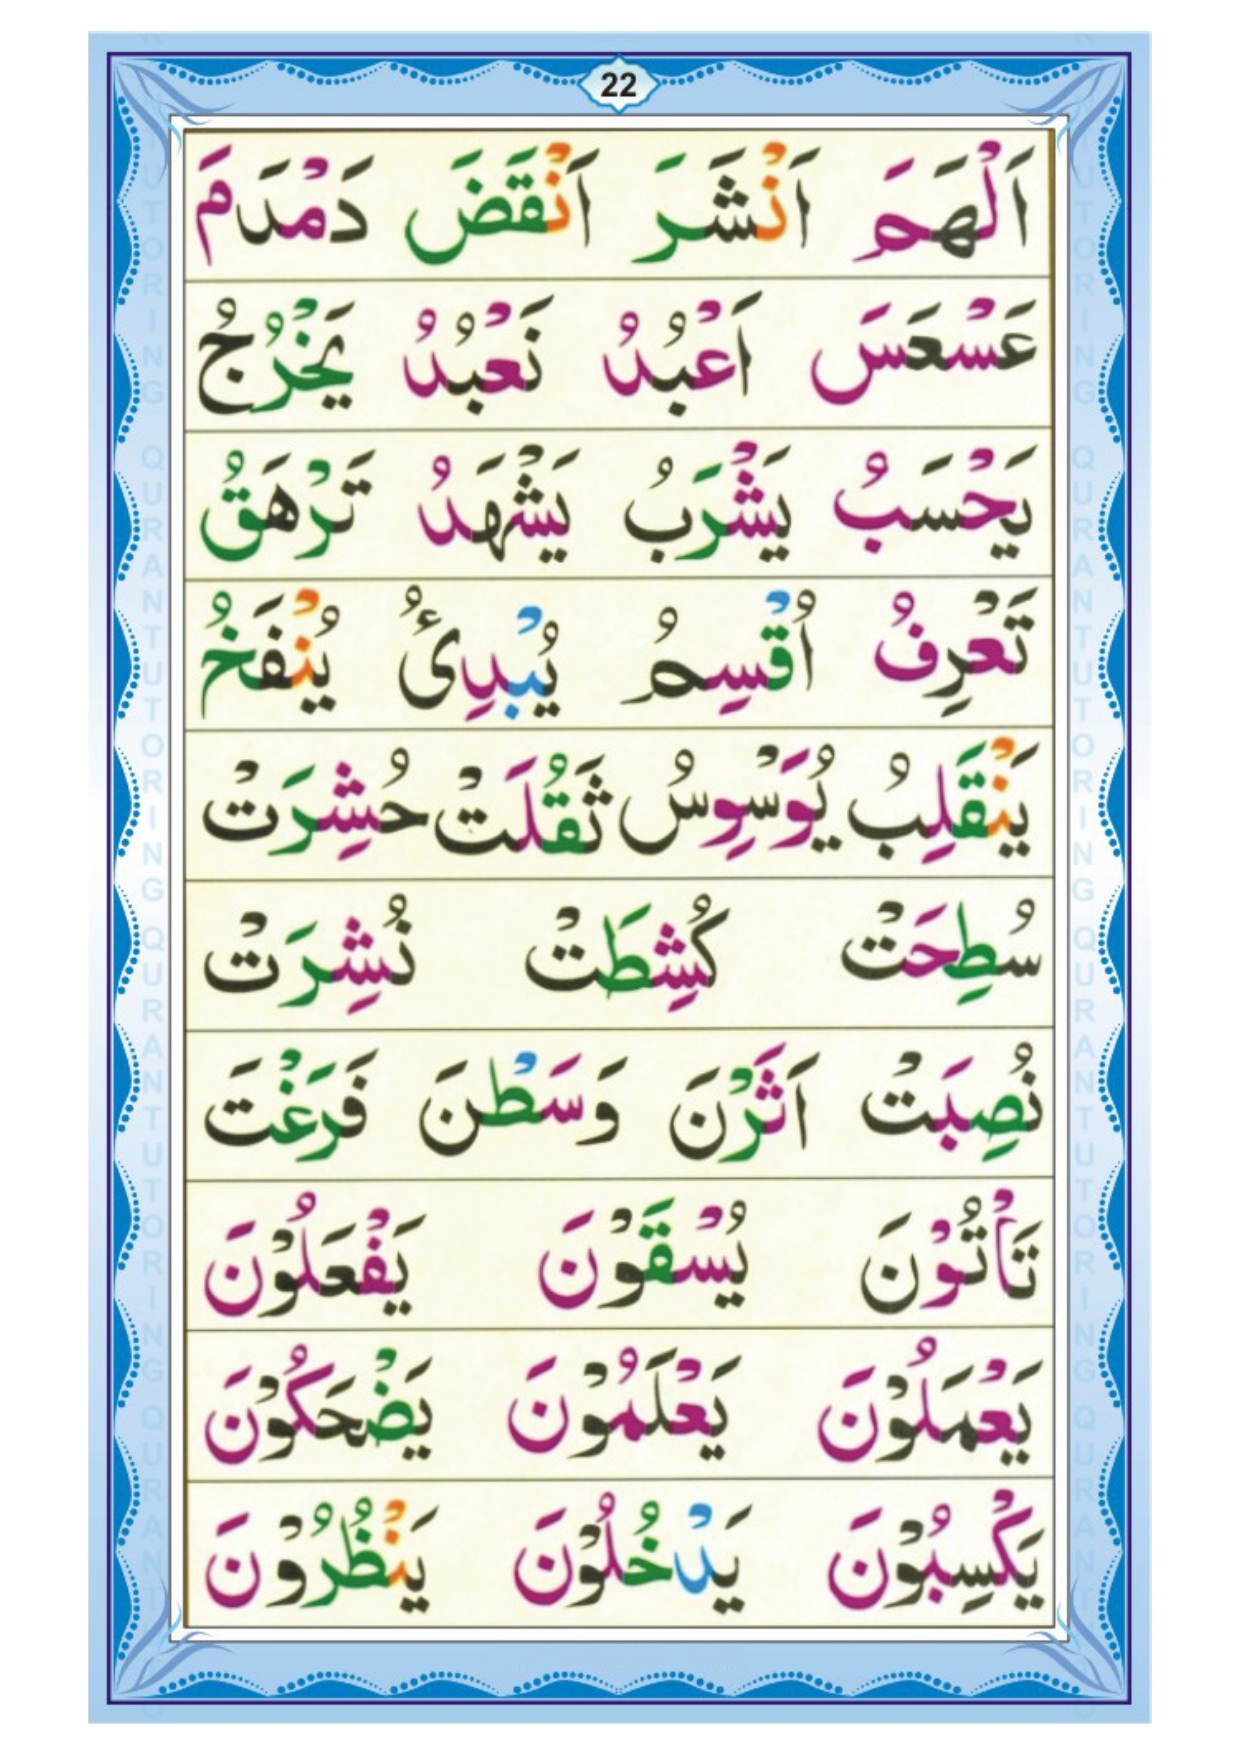 22
اَلْهَمَ اَنْشَرَ اَنْقَضَ دَمْدَمَ
عَسْعَسَ اَعْبُدُ نَعْبُدُ يَخْرُجُ
يَحْسَبُ يَشْرَبُ يَشْهَدُ تَرْهَقُ
تَعْرِفُ اُقْسِمُ يُبْدِئُ يُنْفَخُ
يَنْقَلِبُ يُوَسْوِسُ ثَقُلَتْ حُشِرَتْ
سُطِحَتْ كُشِطَتْ نُشِرَتْ
نُصِبَتْ اَثَرْنَ وَسَطْنَ فَرَغْتَ
تَأْتُوْنَ يُسْقَوْنَ يَفْعَلُوْنَ
يَعْمَلُوْنَ يَعْلَمُوْنَ يَضْحَكُوْنَ
يَكْسِبُوْنَ يَدْخُلُوْنَ يَنْظُرُوْنَ
QURAN TUTORING